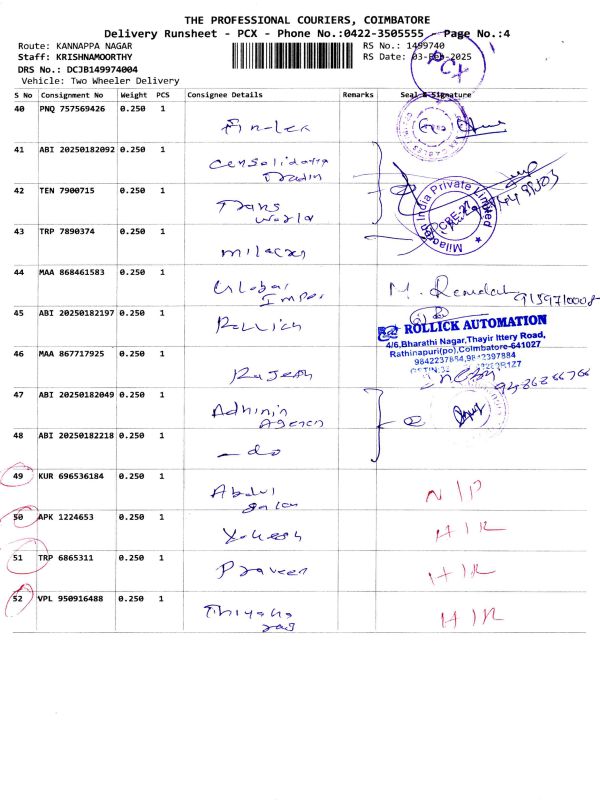 THE PROFESSIONAL COURIERS, COIMBATORE
Delivery Runsheet - PCX - Phone No.:0422-3505555 - Page No.:4
Route: KANNAPPA NAGAR RS No.: 1499740
Staff: KRISHNAMOORTHY RS Date: 03-Feb-2025
DRS No.: DCJB149974004
Vehicle: Two Wheeler Delivery
PCX
S No Consignment No Weight PCS Consignee Details Remarks Seal & Signature
40 PNQ 757569426 0.250 1
41 ABI 20250182092 0.250 1
42 TEN 7900715 0.250 1
Trans
world
Milacron India Private Limited
43 TRP 7890374 0.250 1
milacron
44 MAA 868461583 0.250 1
Global
Impex
M.
45 ABI 20250182197 0.250 1
ROLLICK AUTOMATION
4/6,Bharathi Nagar,Thayir Ittery Road,
Rathinapuri(po),Coimbatore-641027
46 MAA 867717925 0.250 1
Rajesh
47 ABI 20250182049 0.250 1
Agency
48 ABI 20250182218 0.250 1
- do
49 KUR 696536184 0.250 1
Abdul
N/P
50 APK 1224653 0.250 1
Yokesh
H/R
51 TRP 6865311 0.250 1
Praveen
H/R
52 VPL 950916488 0.250 1
H/R